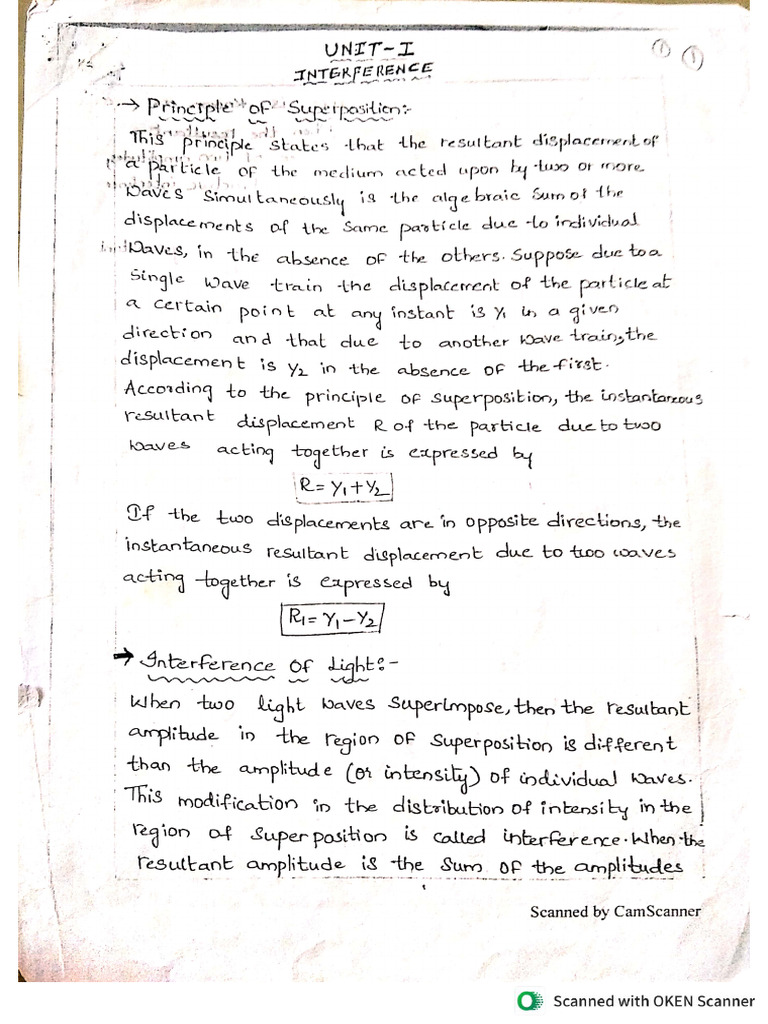 UNIT-I
① ①
INTERFERENCE
→ Principle of Superposition:-
This principle states that the resultant displacement of
a particle of the medium acted upon by two or more
waves simultaneously is the algebraic sum of the
displacements of the same particle due to individual
waves, in the absence of the others. Suppose due to a
single wave train the displacement of the particle at
a certain point at any instant is y₁ in a given
direction and that due to another wave train, the
displacement is y₂ in the absence of the first.
According to the principle of superposition, the instantaneous
resultant displacement R of the particle due to two
waves acting together is expressed by
R = y₁ + y₂
If the two displacements are in opposite directions, the
instantaneous resultant displacement due to two waves
acting together is expressed by
R₁ = y₁ - y₂
→ Interference of Light:-
When two light waves superimpose, then the resultant
amplitude in the region of superposition is different
than the amplitude (or intensity) of individual waves.
This modification in the distribution of intensity in the
region of superposition is called interference. When the
resultant amplitude is the sum of the amplitudes
Scanned by CamScanner
Scanned with OKEN Scanner